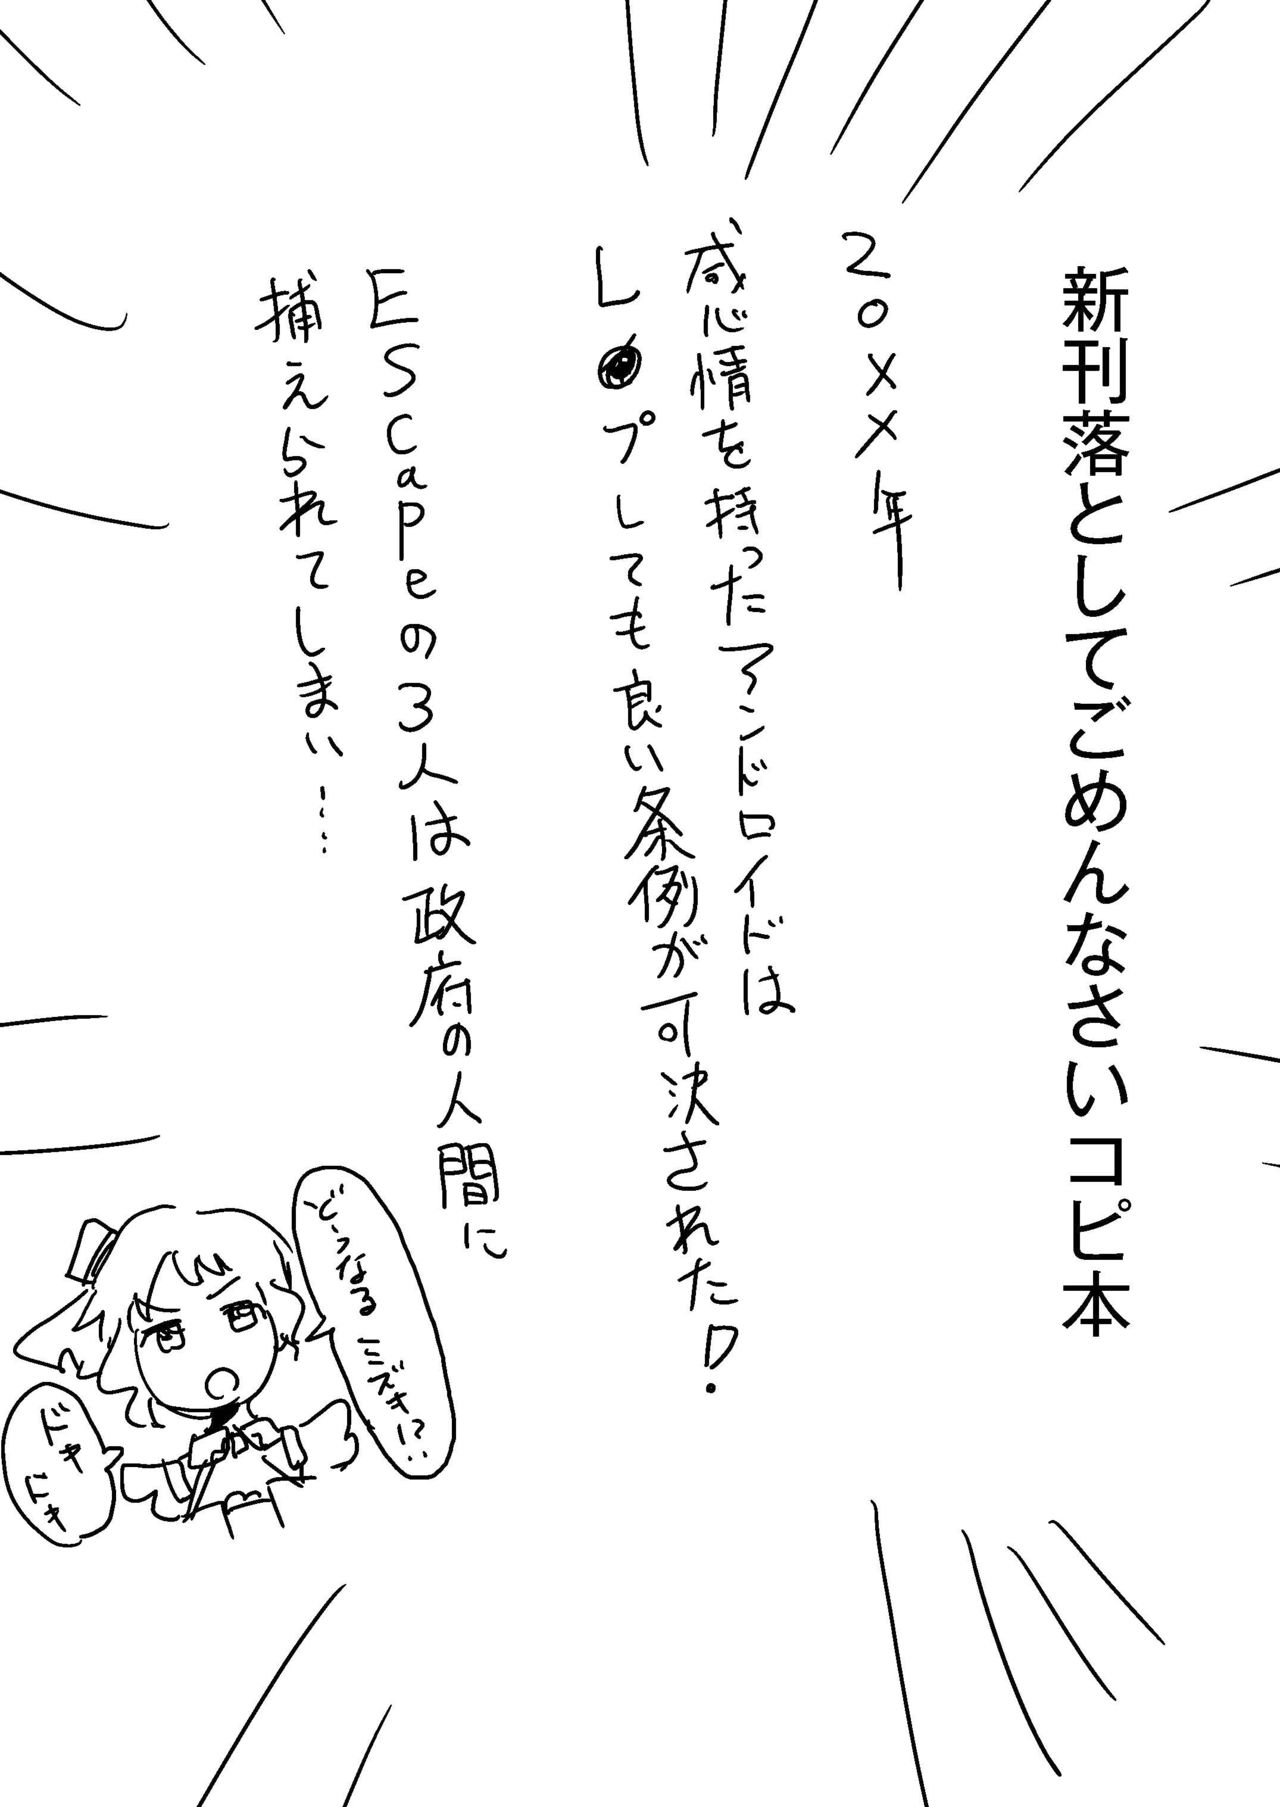 新刊落としてごめんなさいコピ本
20××年
感情を持ったアンドロイドは
レ●プしても良い条例が可決された!
EScapeの3人は政府の人間に
捕えられてしまい……
どーなるミズキ!?
ドキ
ドキ